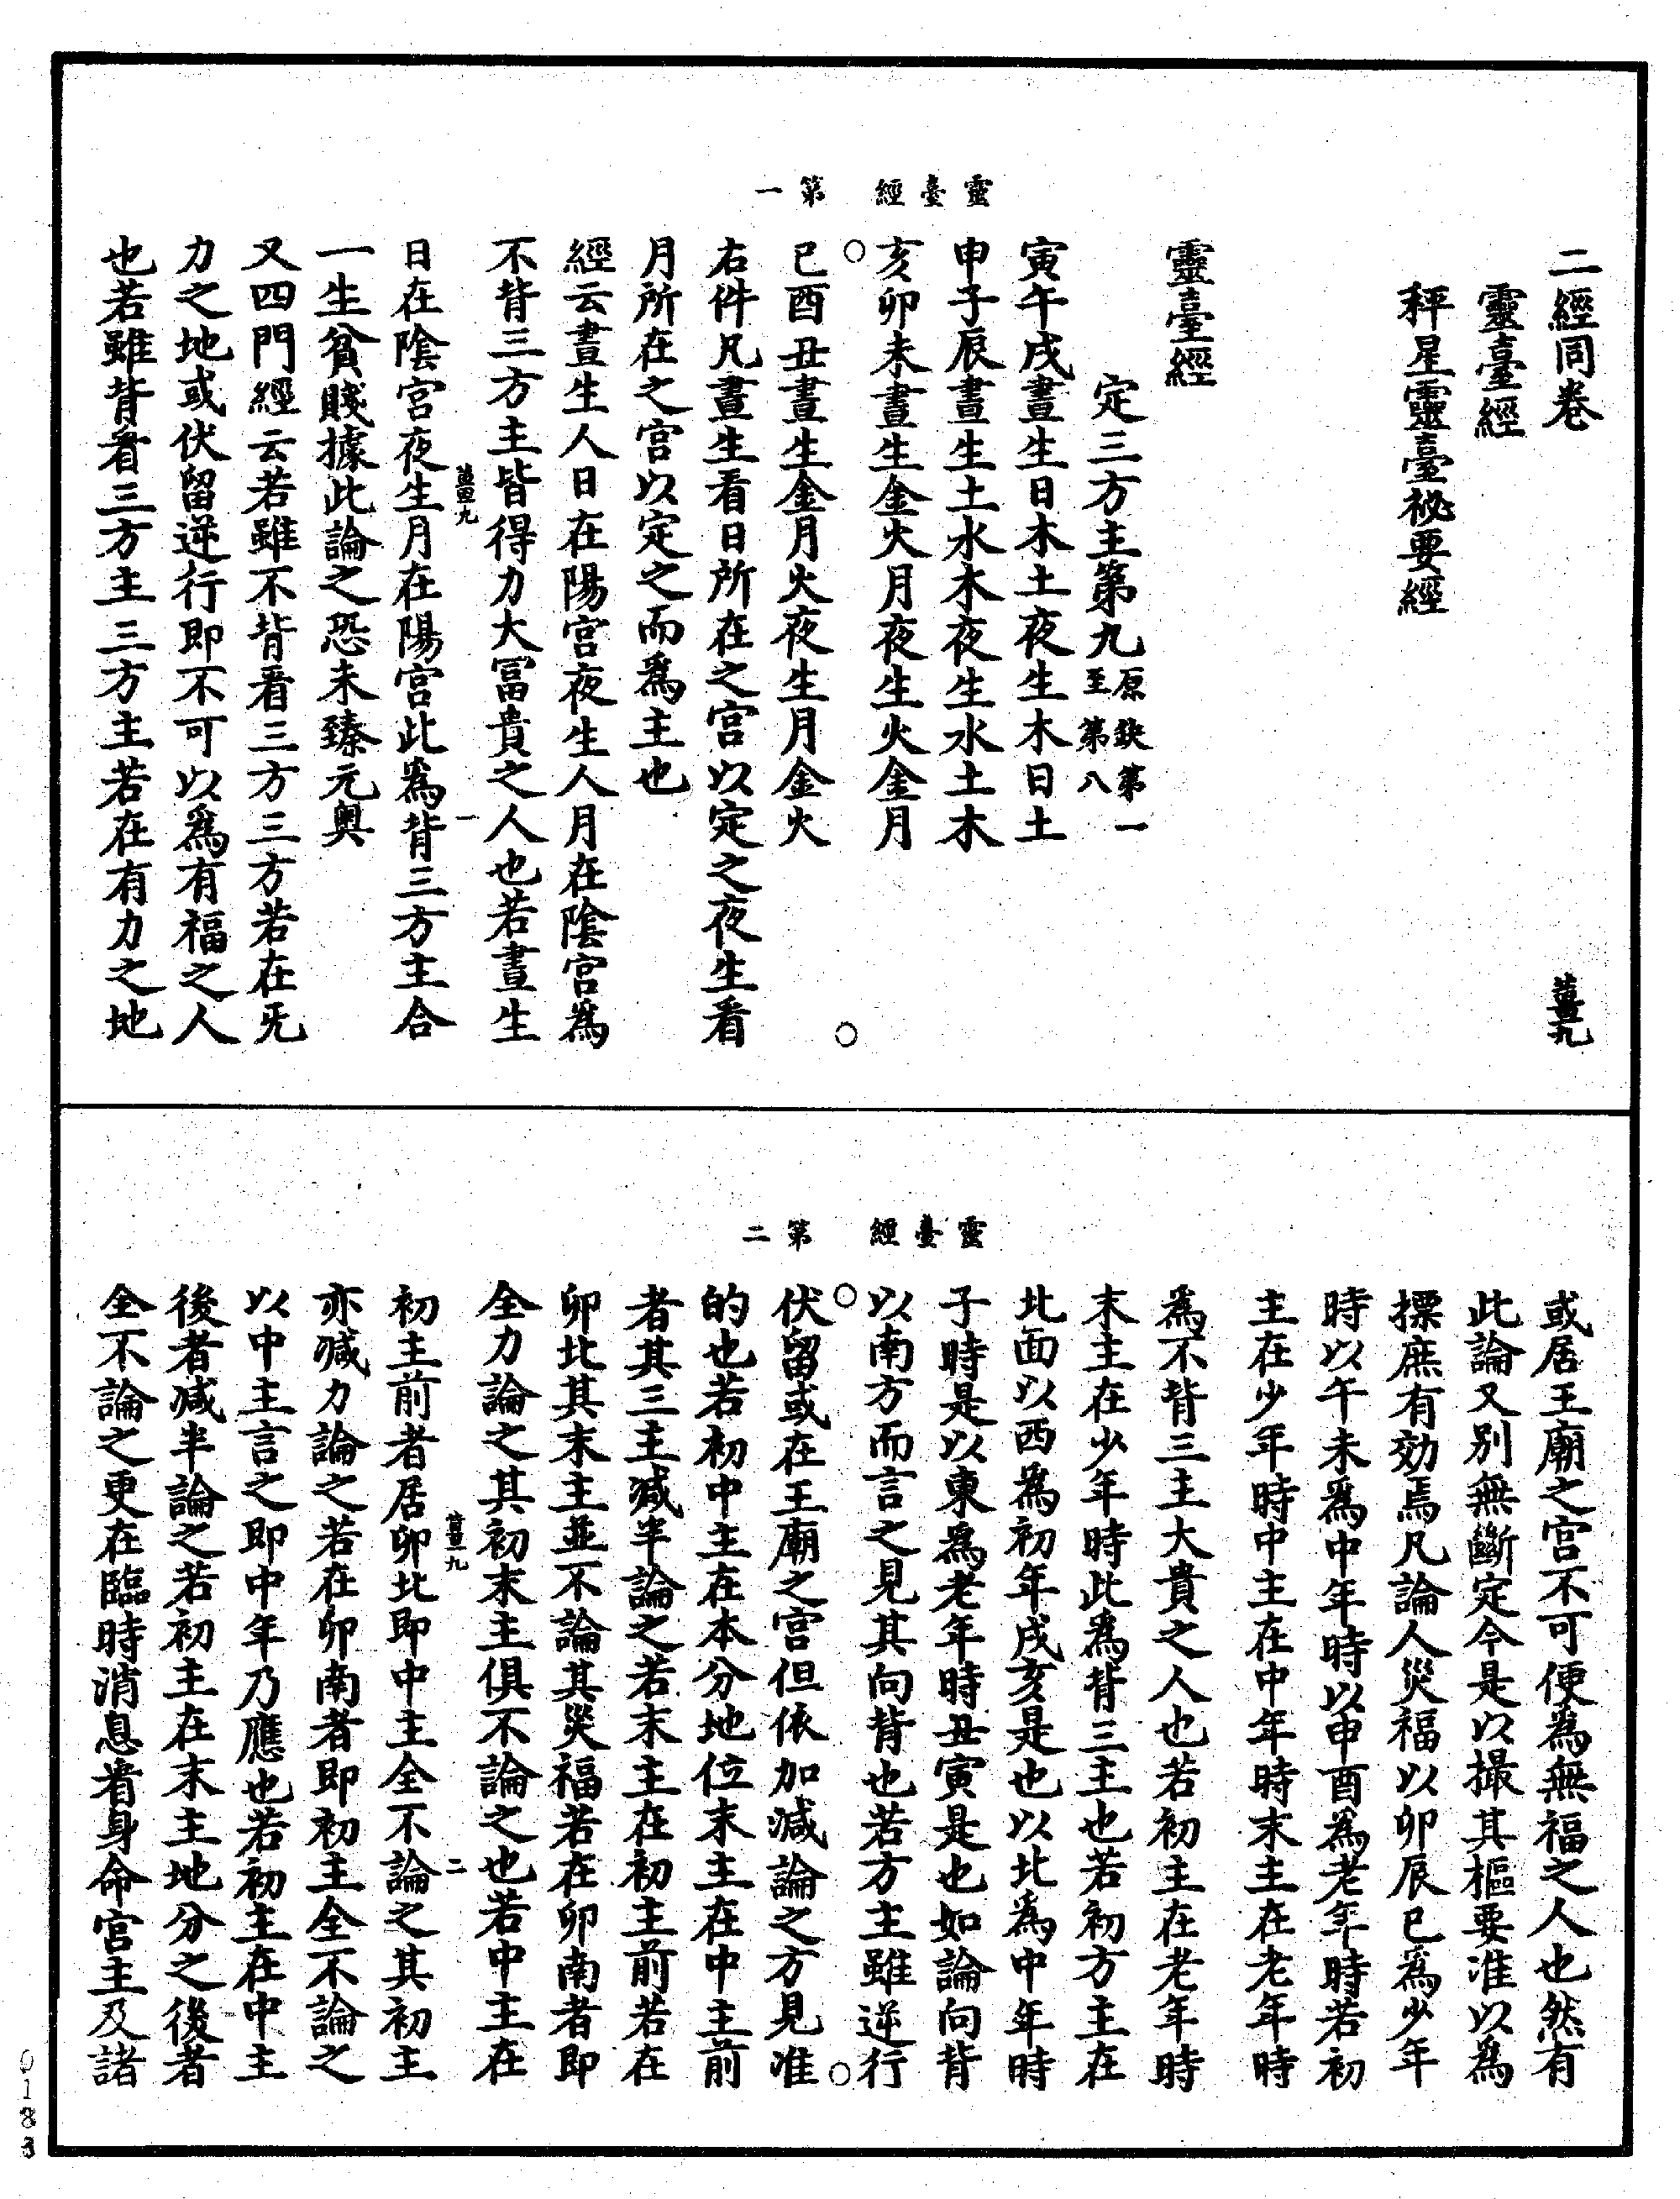 二經同卷
薑九
靈臺經
秤星靈臺祕要經
靈臺經
定三方主第九原缺第一至第八
寅午戌晝生日木土夜生木日土
申子辰晝生土水木夜生水土木
亥卯未晝生金火月夜生火金月
靈臺經 第一
巳酉丑晝生金月火夜生月金火
右件凡晝生看日所在之宮以定之夜生看
月所在之宮以定之而爲主也
經云晝生人日在陽宮夜生人月在陰宮爲
不背三方主皆得力大冨貴之人也若晝生
薑九 一
日在陰宮夜生月在陽宮此爲背三方主合
一生貧賤據此論之恐未臻元奧
又四門經云若雖不背看三方三方若在旡
力之地或伏留逆行即不可以爲有福之人
也若雖背看三方主三方主若在有力之地
或居王廟之宮不可便爲無福之人也然有
此論又別無斷定今是以撮其樞要准以爲
摽庶有効焉凡論人災福以卯辰巳爲少年
時以午未爲中年時以申酉爲老年時若初
主在少年時中主在中年時末主在老年時
爲不背三主大貴之人也若初主在老年時
末主在少年時此爲背三主也若初方主在
北面以西爲初年戌亥是也以北爲中年時
子時是以東爲老年時丑寅是也如論向背
以南方而言之見其向背也若方主雖逆行
靈臺經 第二
伏留或在王廟之宮但依加減論之方見准
的也若初中主在本分地位末主在中主前
者其三主減半論之若末主在初主前若在
卯北其末主並不論其災福若在卯南者即
全力論之其初末主俱不論之也若中主在
薑九 二
初主前者居卯北即中主全不論之其初主
亦減力論之若在卯南者即初主全不論之
以中主言之即中年乃應也若初主在中主
後者減半論之若初主在末主地分之後者
全不論之更在臨時消息看身命宮主及諸
0183